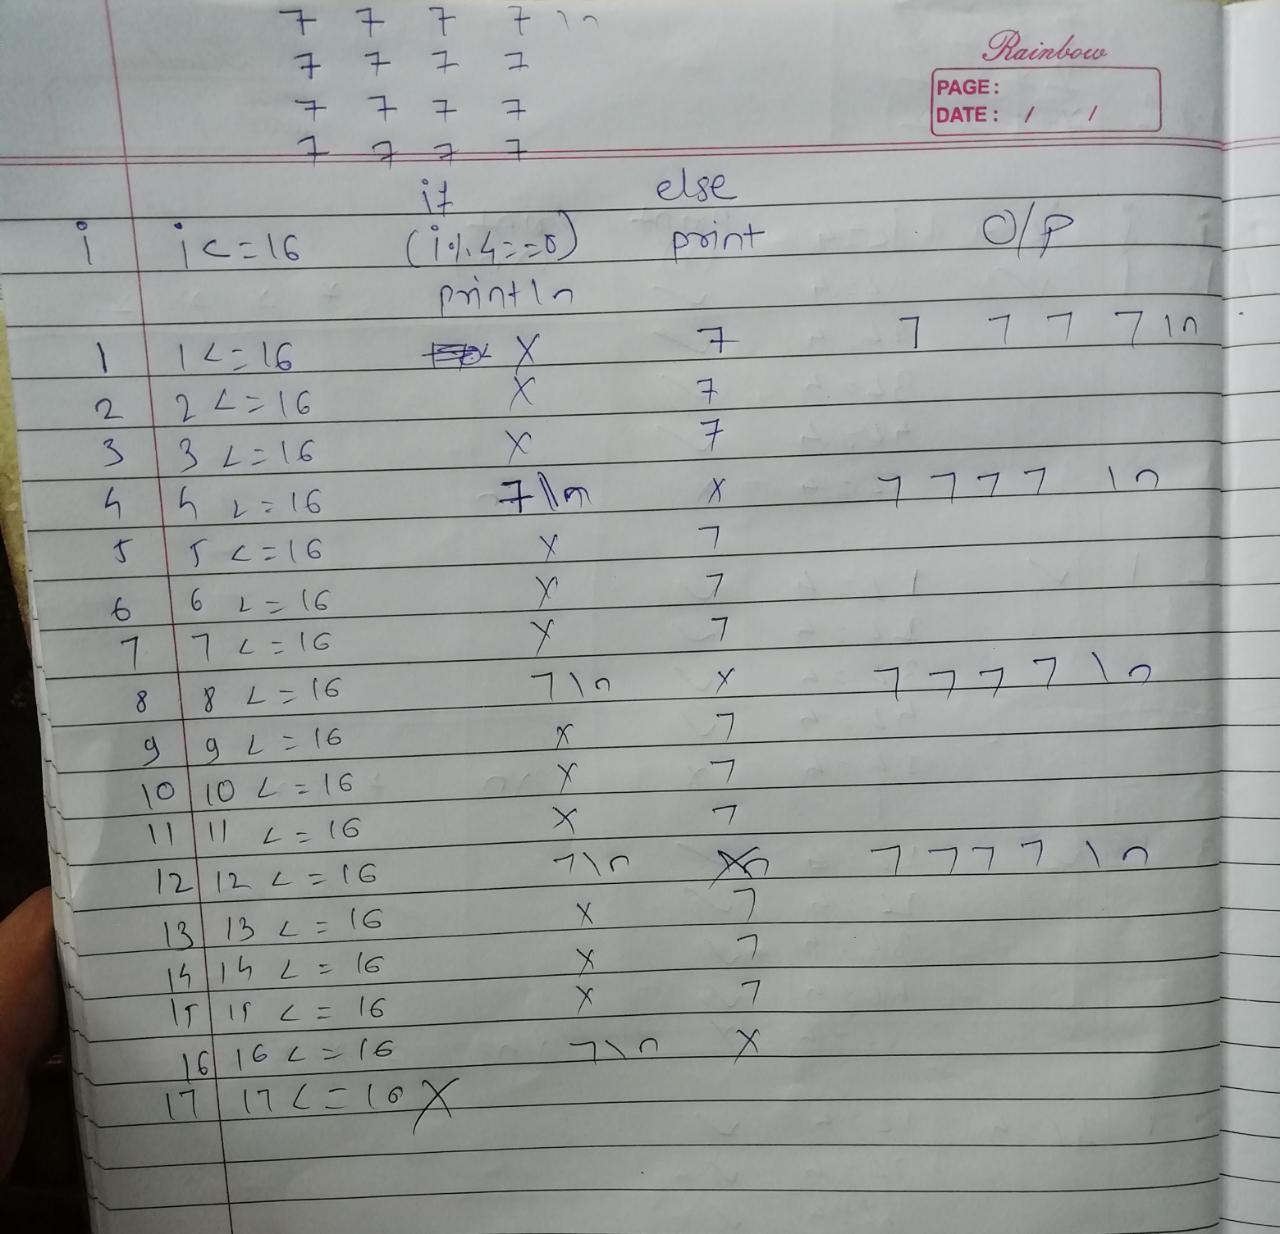 7 7 7 7 \n
7 7 7 7
7 7 7 7
7 7 7 7
Rainbow
PAGE:
DATE: / /
if else
i i<=16 (i%4==0) print O/P
println
1 1<=16 X 7 7 7 7 7 \n
2 2<=16 X 7
3 3<=16 X 7
4 4<=16 7\n X 7 7 7 7 \n
5 5<=16 X 7
6 6<=16 X 7
7 7<=16 X 7
8 8<=16 7\n X 7 7 7 7 \n
9 9<=16 X 7
10 10<=16 X 7
11 11<=16 X 7
12 12<=16 7\n X 7 7 7 7 \n
13 13<=16 X 7
14 14<=16 X 7
15 15<=16 X 7
16 16<=16 7\n X
17 17<=16 X